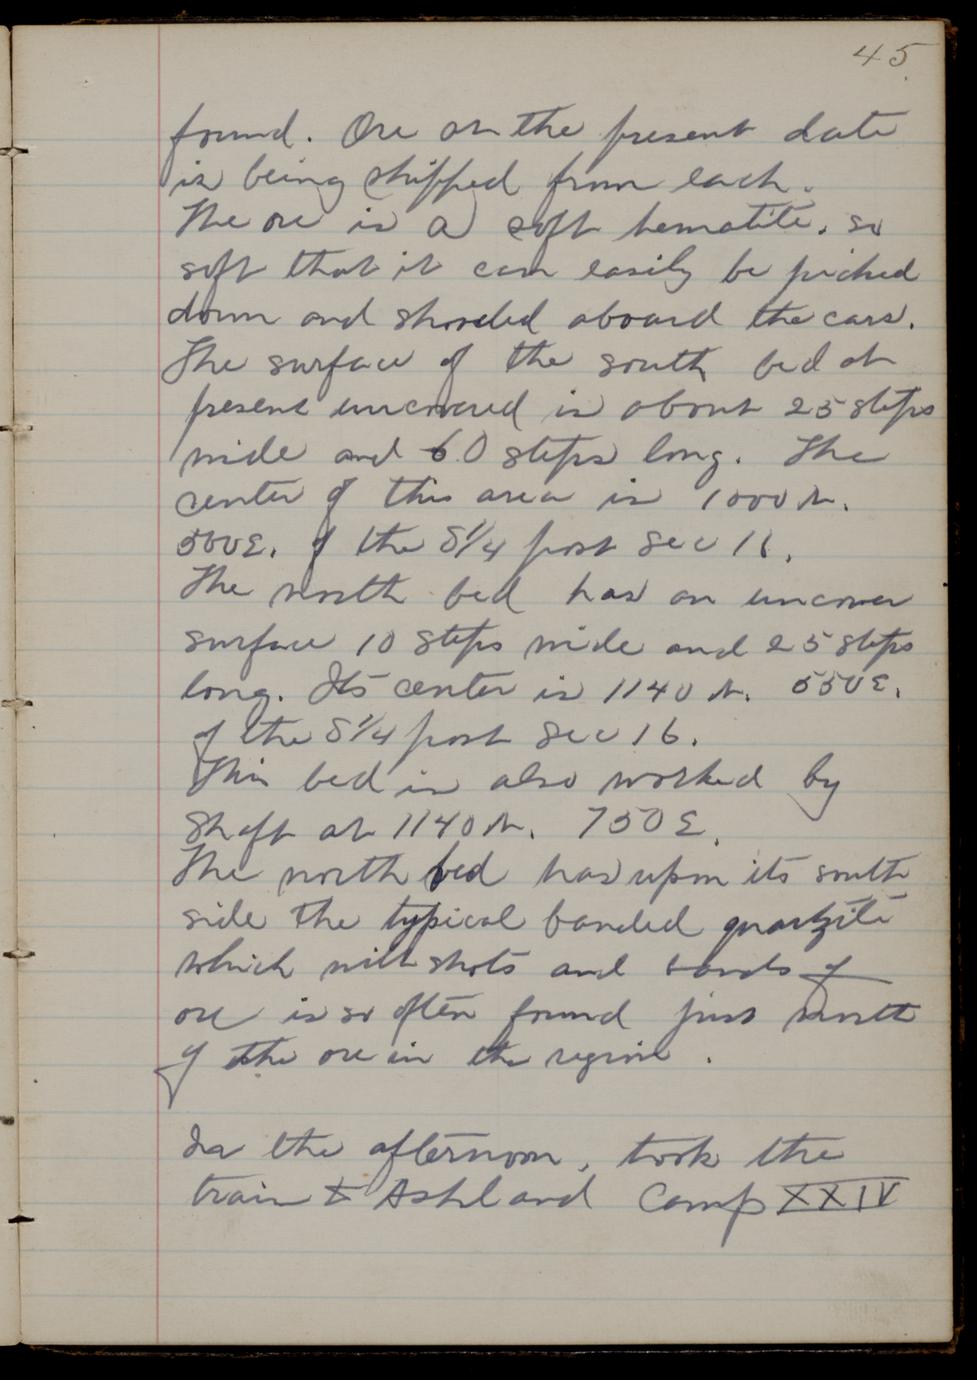 45
found. Ore on the present date
is being shipped from each.
The ore is a soft hematite, so
soft that it can easily be picked
down and shoveled aboard the cars.
The surface of the south bed at
present uncovered is about 25 steps
wide and 60 steps long. The
center of this area is 1000 N.
500 E. of the S 1/4 post Sec 16.
The north bed has an uncover
surface 10 steps wide and 25 steps
long. Its center is 1140 N. 550 E.
of the S 1/4 post Sec 16.
This bed is also worked by
Shaft at 1140 N. 750 E.
The north bed has upon its south
side the typical banded quartzite
which with shots and bands of
ore is so often found just north
of the ore in the region.
In the afternoon, took the
train to Ashland Camp XXIV